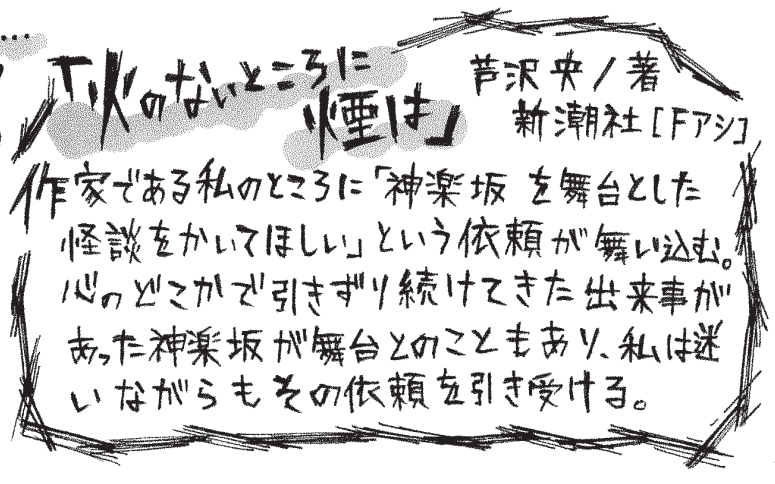 「火のないところに
煙は」
芦沢央/著
新潮社[Fアシ]
作家である私のところに「神楽坂を舞台とした
怪談をかいてほしい」という依頼が舞い込む。
心のどこかで引きずり続けてきた出来事が
あった神楽坂が舞台とのこともあり、私は迷
いながらもその依頼を引き受ける。